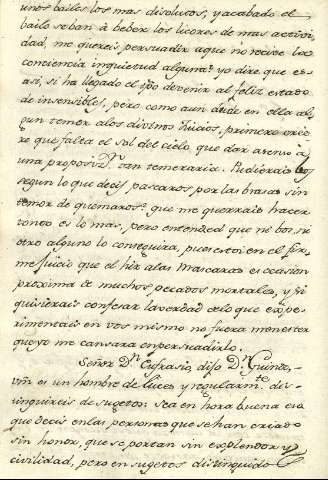 unos bailes los mas disolutos, y acabado el
baile se ban à beber los licores de mas activi-
dad, me quereis persuadir aque no recive la
conciencia inquietud alguna? yo dire que es
asi, si ha llegado el qdo devenir al feliz estado
de insensibles, pero como aun dure en ella al-
gun temer alos divinos Juicios, primero crie-
re que falta el sol del cielo, que dar asenso à
una proposizn tan temeraria. Pudierais Vos
segun lo que decis pasearos por las brasas sin
temor de quemaros? que me querrais hacer
tonto es lo mas, pero entended que ni bos, ni
otro alguno lo conseguira, pues estoi en el fir-
me juicio que el hir a las Mascaras es ocasion
proxima de muchos pecados mortales, y si
quisierais confesar la verdad delo que expe-
rimentais en vos mismo no fuera menester
que yo me cansara en persuadirlo.
Señor Dn Eufrasio, dijo Dn
es un hombre de luces y regularmte. dis-
tinguireis de sugetos: sea en hora buena eso
que decis en las personas que se han criado
sin honor, que se portan sin explendor y
civilidad, pero en sugetos distinguidos